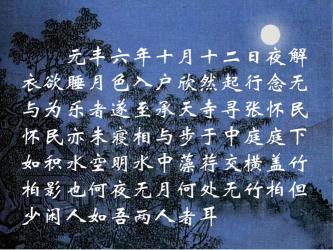 元丰六年十月十二日夜解
衣欲睡月色入户欣然起行念无
与为乐者遂至承天寺寻张怀民
怀民亦未寝相与步于中庭庭下
如积水空明水中藻荇交横盖竹
柏影也何夜无月何处无竹柏但
少闲人如吾两人者耳